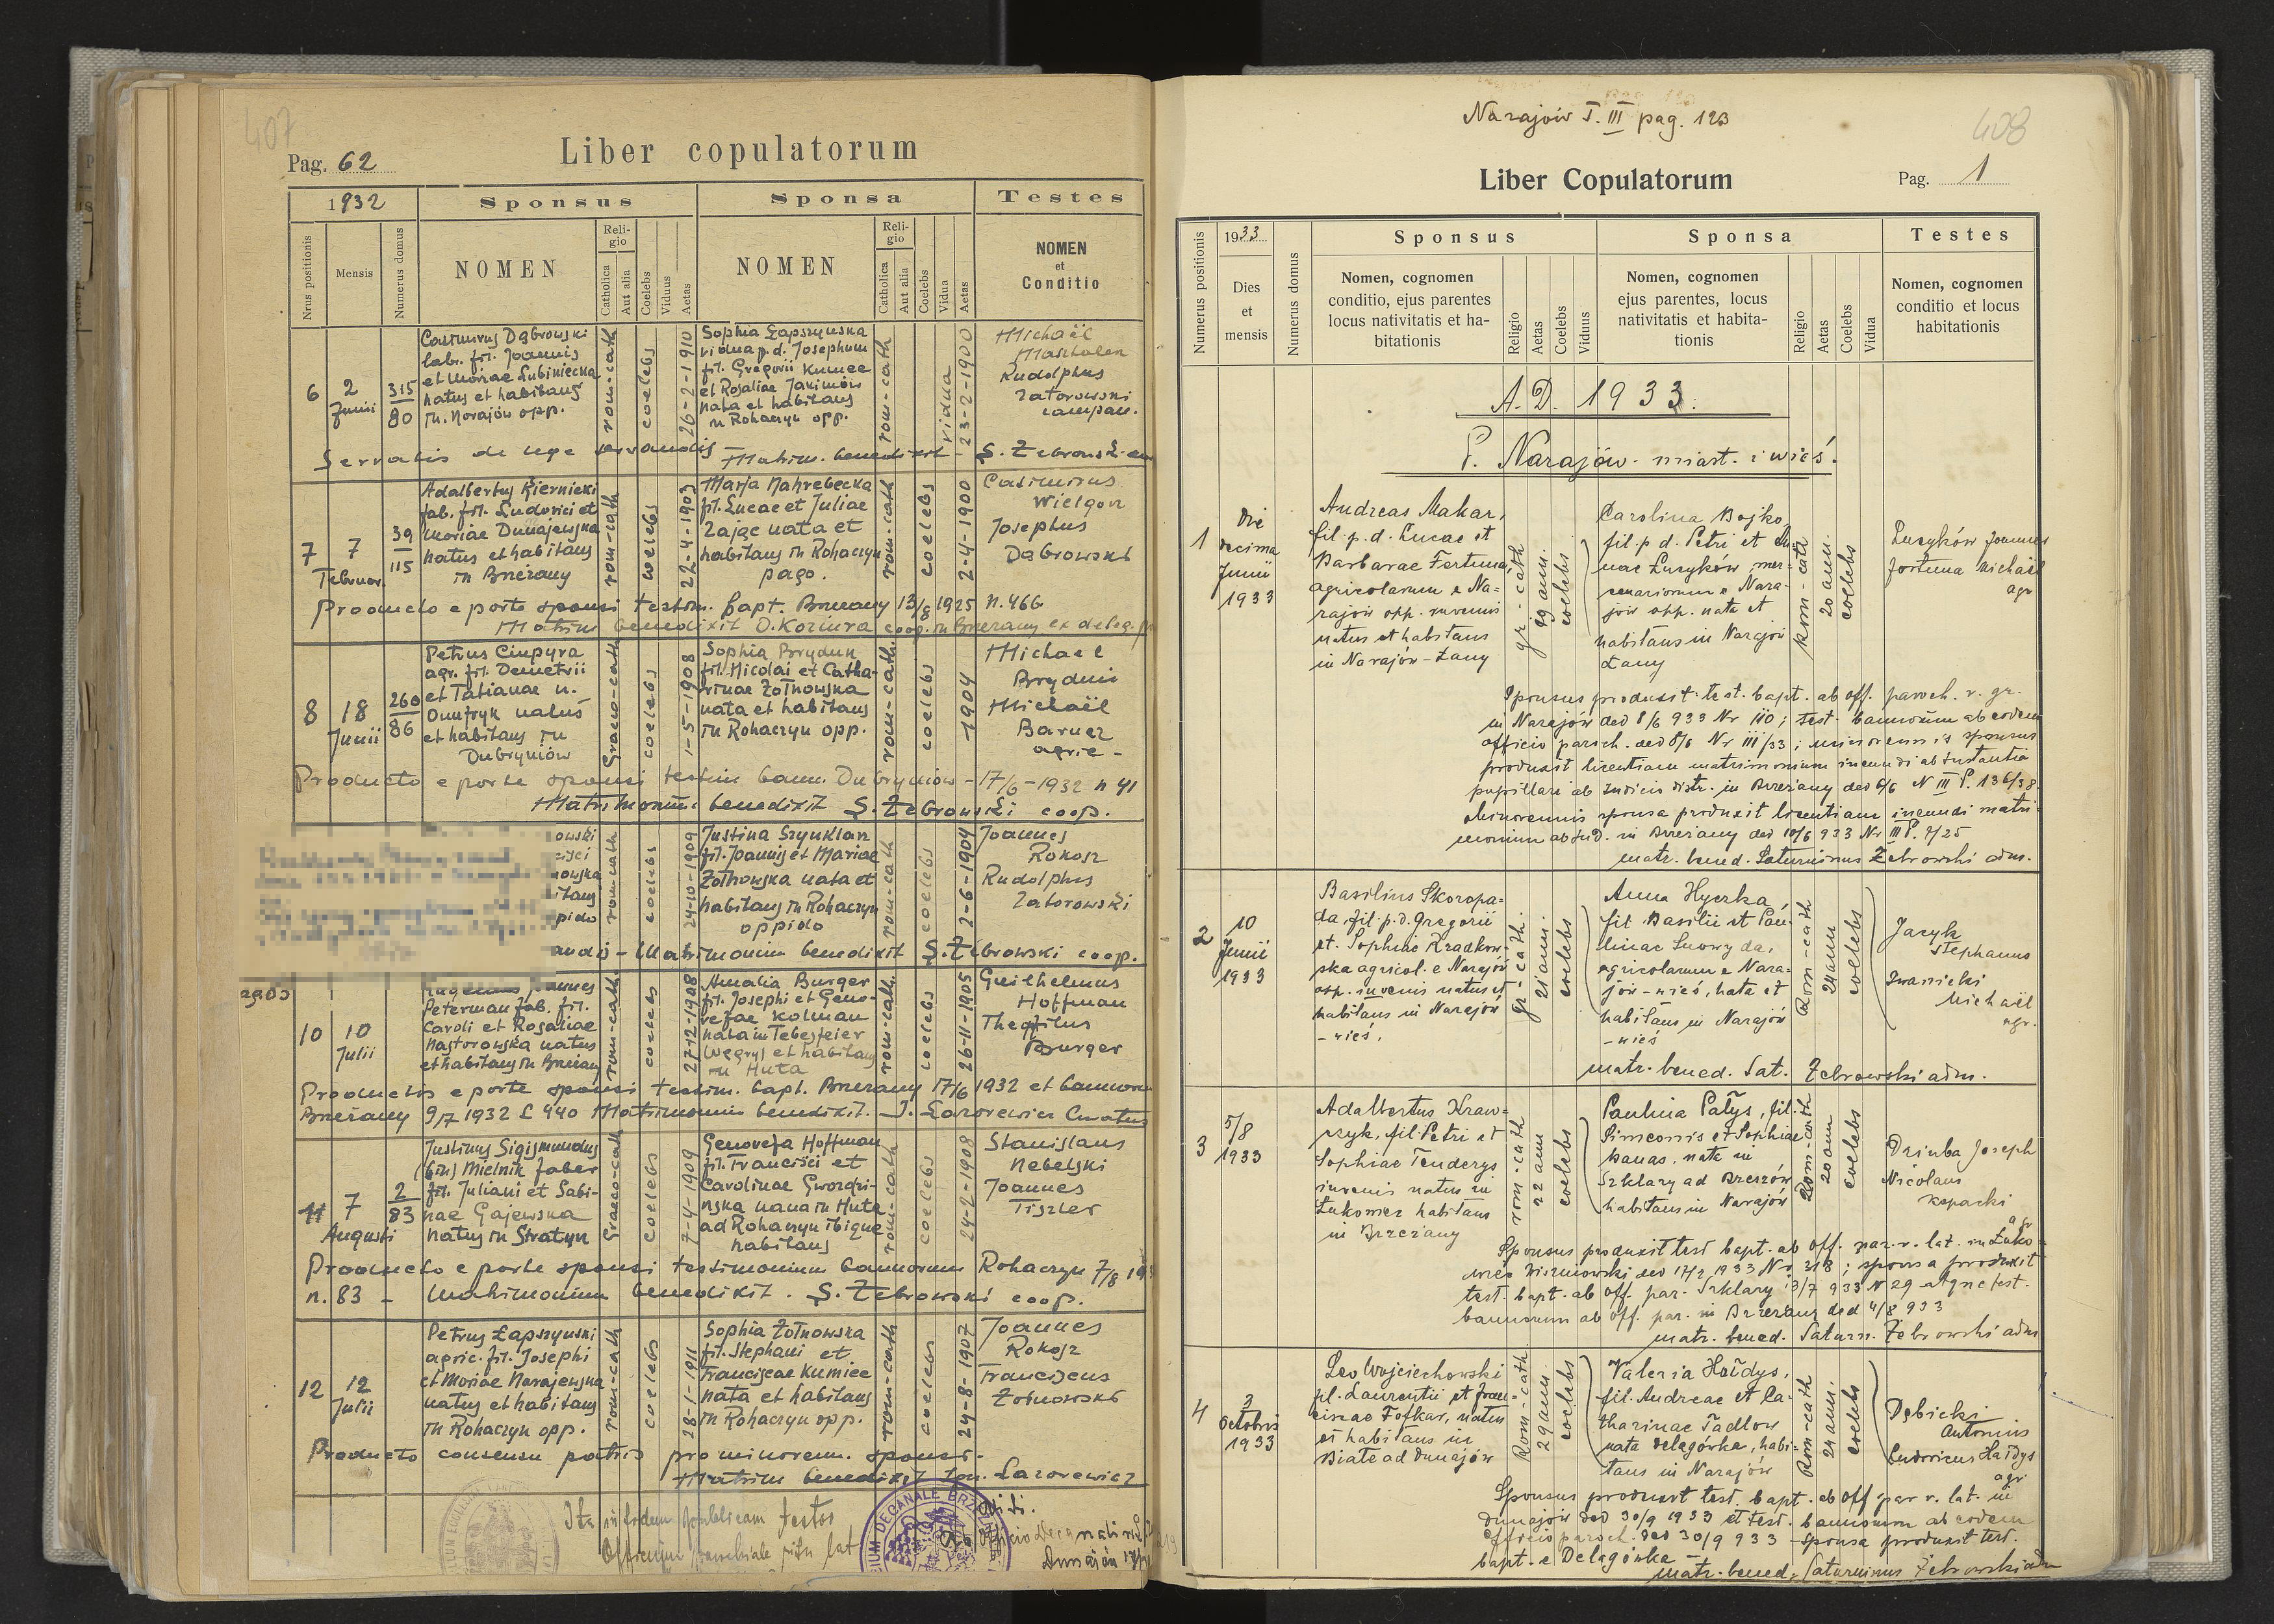 407
Pag. 62
Liber copulatorum
1932
Sponsus
Sponsa
Testes
Nrus positionis
Mensis
Numerus domus
NOMEN
Religio
Catholica
Aut alia
Coelebs
Viduus
Aetas
NOMEN
Religio
Catholica
Aut alia
Coelebs
Vidua
Aetas
NOMEN
et
Conditio
6
2
Junii
315
80
Casimirus Dąbrowski
lab. fil. Joannis
et Mariae Lubiniecka
natus et habitans
in Narajów opp.
rom-cath
coelebs
26-2-1910
Sophia Łapszynska
vidua p.d. Josephum
fil. Gregorii Kumiec
et Rosaliae Janimów
nata et habitans
in Rohaczyn opp.
rom-cath
vidua
23-2-1900
Michaël
Marhalen
Rudolphus
Zatorowski
campan.
Servatis de lege servandis Matrim. benedixit - S. Żebrowski
7
7
Februar.
39
115
Adalbertus Kiernicki
fab. fil. Ludovici et
Mariae Dunajewska
natus et habitans
in Brzeżany
rom-cath
coelebs
22-4-1903
Marja Nahrebecka
fil. Lucae et Juliae
Zając nata et
habitans in Rohaczyn
pago.
rom-cath
coelebs
2-4-1900
Casimirus
Wielgon
Josephus
Dąbrowski
Producto e parte sponsi testim. bapt. Brzeżany 13/8 1925 n. 466
Matrim benedixit O. Koziura coop. in Brzeżany ex deleg.
8
18
Junii
260
86
Petrus Ciupyra
agr. fil. Demetrii
et Tatianae n.
Onufryk natus
et habitans in
Dubryniów
Graeco-cath
coelebs
1-5-1908
Sophia Brydun
fil. Nicolai et Catha-
rinae Żołnowska
nata et habitans
in Rohaczyn opp.
rom-cath.
coelebs
1904
Michael
Brydun
Michaël
Barucz
agric -
Producto e parte sponsi testim bann. Dubryniów - 17/6 - 1932 n 41
Matrimonium benedixit S. Żebrowski coop.
owski
nowska
itans
ppido
rom-cath
coelebs
24-10-1909
Justina Szynklan
fil. Joannis et Mariae
Żołnowska nata et
habitans in Rohaczyn
oppido
rom-cath
coelebs
2-6-1904
Joannes
Rokosz
Rudolphus
Zatorowski
andis - Matrimonium benedixit S. Żebrowski coop.
10
10
Julii
Joannes
Peterman fab. fil.
Caroli et Rosaliae
Nastorowska natus
et habitans in Brzeżany
rom-cath.
coelebs
27-12-1908
Amalia Burger
fil. Josephi et Geno-
vefae Kolman
nata in Tebesfeier
(Węgry) et habitans
in Huta
rom-cath.
coelebs
26-11-1905
Guilhelmus
Hoffman
Theofilus
Burger
Productis e parte sponsi testim. bapt. Brzeżany 17/6 1932 et bannorum
Brzeżany 9/7 1932 L 940 Matrimonium benedixit. J. Łazorewicz
11
7
Augusti
2
83
Justinus Sigismundus
(bin) Mielnik faber
fil. Juliani et Sabi-
nae Gajewska
natus in Stratyn
Graeco-cath
coelebs
7-4-1909
Genovefa Hoffman
fil. Francisci et
Carolinae Gwoździ-
nska nata in Huta
ad Rohaczyn ibique
habitans
rom-cath
coelebs
24-2-1908
Stanislaus
Nebelski
Joannes
Tiszler
Producto e parte sponsi testimonium bannorum Rohaczyn 7/8
n. 83 - Matrimonium benedixit. S. Żebrowski coop.
12
12
Julii
Petrus Łapszynski
agric. fil. Josephi
et Mariae Narajewska
natus et habitans
in Rohaczyn opp.
rom-cath
coelebs
28-1-1911
Sophia Żołnowska
fil. Stephani et
Franciscae Kumiec
nata et habitans
in Rohaczyn opp.
rom-cath
coelebs
24-8-1907
Joannes
Rokosz
Franciscus
Żołnowski
Producto consensu patris pro minorenn. sponso -
Matrim benedixit Jan. Łazorewicz
Ita in fidem publicam testor
Officium parochiale ritus lat
Narajów T. III pag. 123
408
Liber Copulatorum
Pag. 1
Numerus positionis
1933
Dies
et
mensis
Numerus domus
Sponsus
Nomen, cognomen
conditio, ejus parentes
locus nativitatis et ha-
bitationis
Religio
Aetas
Coelebs
Viduus
Sponsa
Nomen, cognomen
ejus parentes, locus
nativitatis et habita-
tionis
Religio
Aetas
Coelebs
Vidua
Testes
Nomen, cognomen
conditio et locus
habitationis
A.D. 1933.
P. Narajów - miast. i wieś.
1
Die
decima
Junii
1933
Andreas Makar,
fil. p. d. Lucae et
Barbarae Fortuna,
agricolarum e Na-
rajów opp. iuvenis
natus et habitans
in Narajów-Łany
gr.-cath
coelebs
Carolina Bojko,
fil. p. d. Petri et An-
nae Luzyków, mer-
cenariorum e Nara-
jów opp. nata et
habitans in Narajów
Łany
Rom-cath
20 ann.
coelebs
Luzyków Joannes
Fortuna Michaël
agr
Sponsus produxit test. bapt. ab off. paroch. r. gr.
in Narajów ded 8/6 933 Nr 110; test. bannorum ab eodem
officio paroch. ded 8/6 Nr 111/33; minorennis sponsus
produxit licentiam matrimonium ineundi ab instantia
pupillari ab Iudicio distr. in Brzeżany ded 6/6 N III P. 136/38.
Minorennis sponsa produxit licentiam ineundi matri-
monium ab Iud. in Brzeżany ded 10/6 933 Nr III P. 7/25
matr. bened. Saturninus Żebrowski adm.
2
10
Junii
1933
Basilius Skoropa-
da, fil. p. d. Gregorii
et Sophiae Kradkow-
ska agricol. e Narajów
opp. iuvenis natus et
habitans in Narajów
- wieś.
gr-cath.
21 ann.
coelebs
Anna Hycrka,
fil Basilii et Pau-
linae Snowyda,
agricolarum e Nara-
jów-wieś, nata et
habitans in Narajów
- wieś
Rom-cath
24 ann
coelebs
Jazyk
Stephanus
Iwanicki
Michaël
agr.
matr. bened. Sat. Żebrowski adm.
3
5/8
1933
Adalbertus Kraw-
czyk, fil. Petri et
Sophiae Tenderys
iuvenis natus in
Łukowiec habitans
in Brzeżany
rom-cath
22 ann
coelebs
Paulina Patys, fil.
Simeonis et Sophiae
Kanas, nata in
Szklary ad Brzozów
habitans in Narajów
Rom-cath
20 ann
coelebs
Dziuba Joseph
Nicolaus
Kopacki
agr
Sponsus produxit test bapt. ab off. par. r. lat. in Łuko-
wiec Wiszniowski ded 17/2 1933 Nr 318; sponsa produxit
test. bapt. ab off. par. Szklary 13/7 933 N 29 atque test.
bannorum ab off. par. in Brzeżany ded 4/8 933
matr. bened. Saturn. Żebrowski adm
4
3
Octobris
1933
Leo Wojciechowski
fil. Laurentii et Fran-
ciscae Fofkar, natus
et habitans in
Białe ad Dunajów
Rom-cath.
29 ann.
coelebs
Valeria Haidys,
fil. Andreae et Ca-
tharinae Tadlow
nata Delagówka, habi-
tans in Narajów
Rom-cath
24 ann.
coelebs
Dębicki
Antonius
Ludovicus Haidys
agr.
Sponsus produxit test. bapt. ab off. par r. lat. in
Dunajów ded 30/9 1933 et test. bannorum ab eodem
officio paroch. ded 30/9 933 - sponsa produxit test.
bapt. e Delagówka -
matr. bened. Saturninus Żebrowski adm